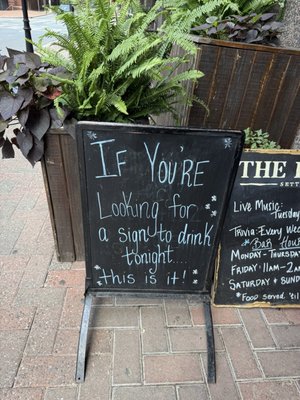 IF YOU'RE
LOOKING for
a sign to drink
tonight....
this is it!
THE
SETT
LIVE MUSIC:
TUESDAY
TRIVIA-EVERY WE
BAR HOU
MONDAY-
THURSDAY
FRIDAY 11AM-2A
SATURDAY & SUND
FOOD SERVED 'TIL